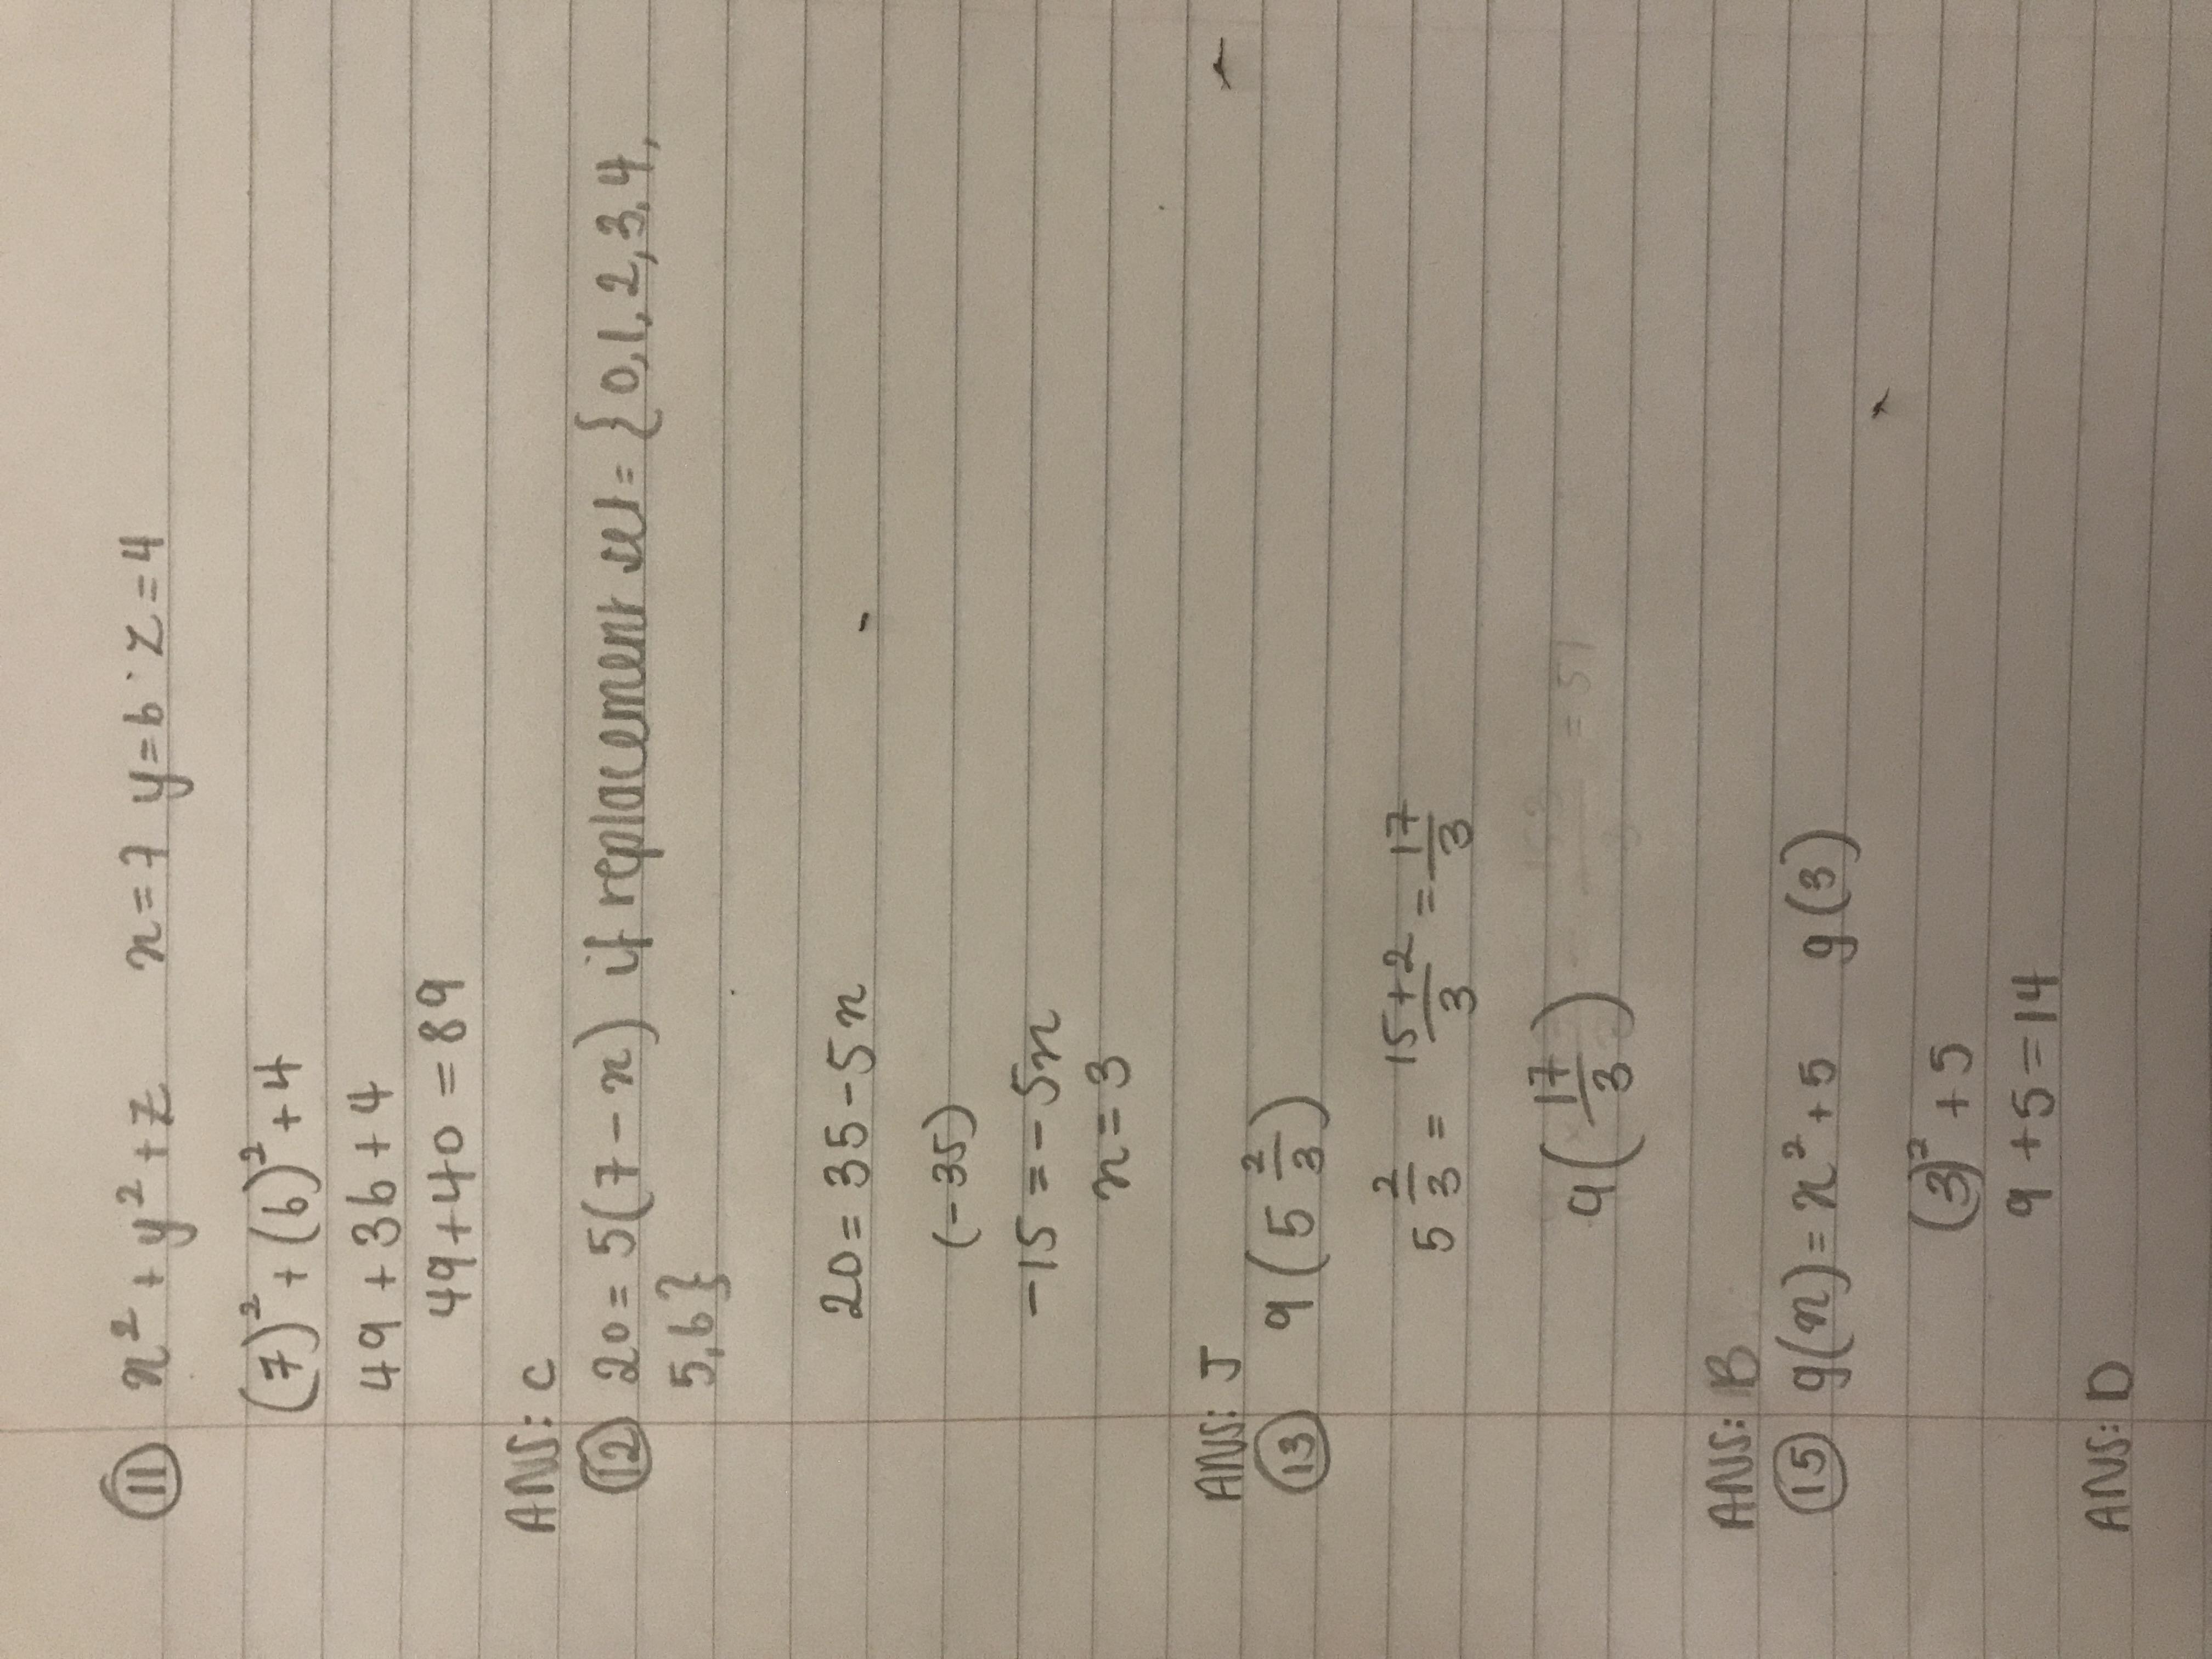 (11) x² + y² + z   x = 7  y = 6  z = 4
(7)² + (6)² + 4
49 + 36 + 4
49 + 40 = 89
ANS: C
(12) 20 = 5(7 - x) if replacement set = {0, 1, 2, 3, 4,
5, 6}
20 = 35 - 5x
(-35)
-15 = -5x
x = 3
ANS: J
(13) 9(5 2/3)
5 2/3 = (15+2)/3 = 17/3
9(17/3)
= 51
ANS: B
(15) g(x) = x² + 5   g(3)
(3)² + 5
9 + 5 = 14
ANS: D